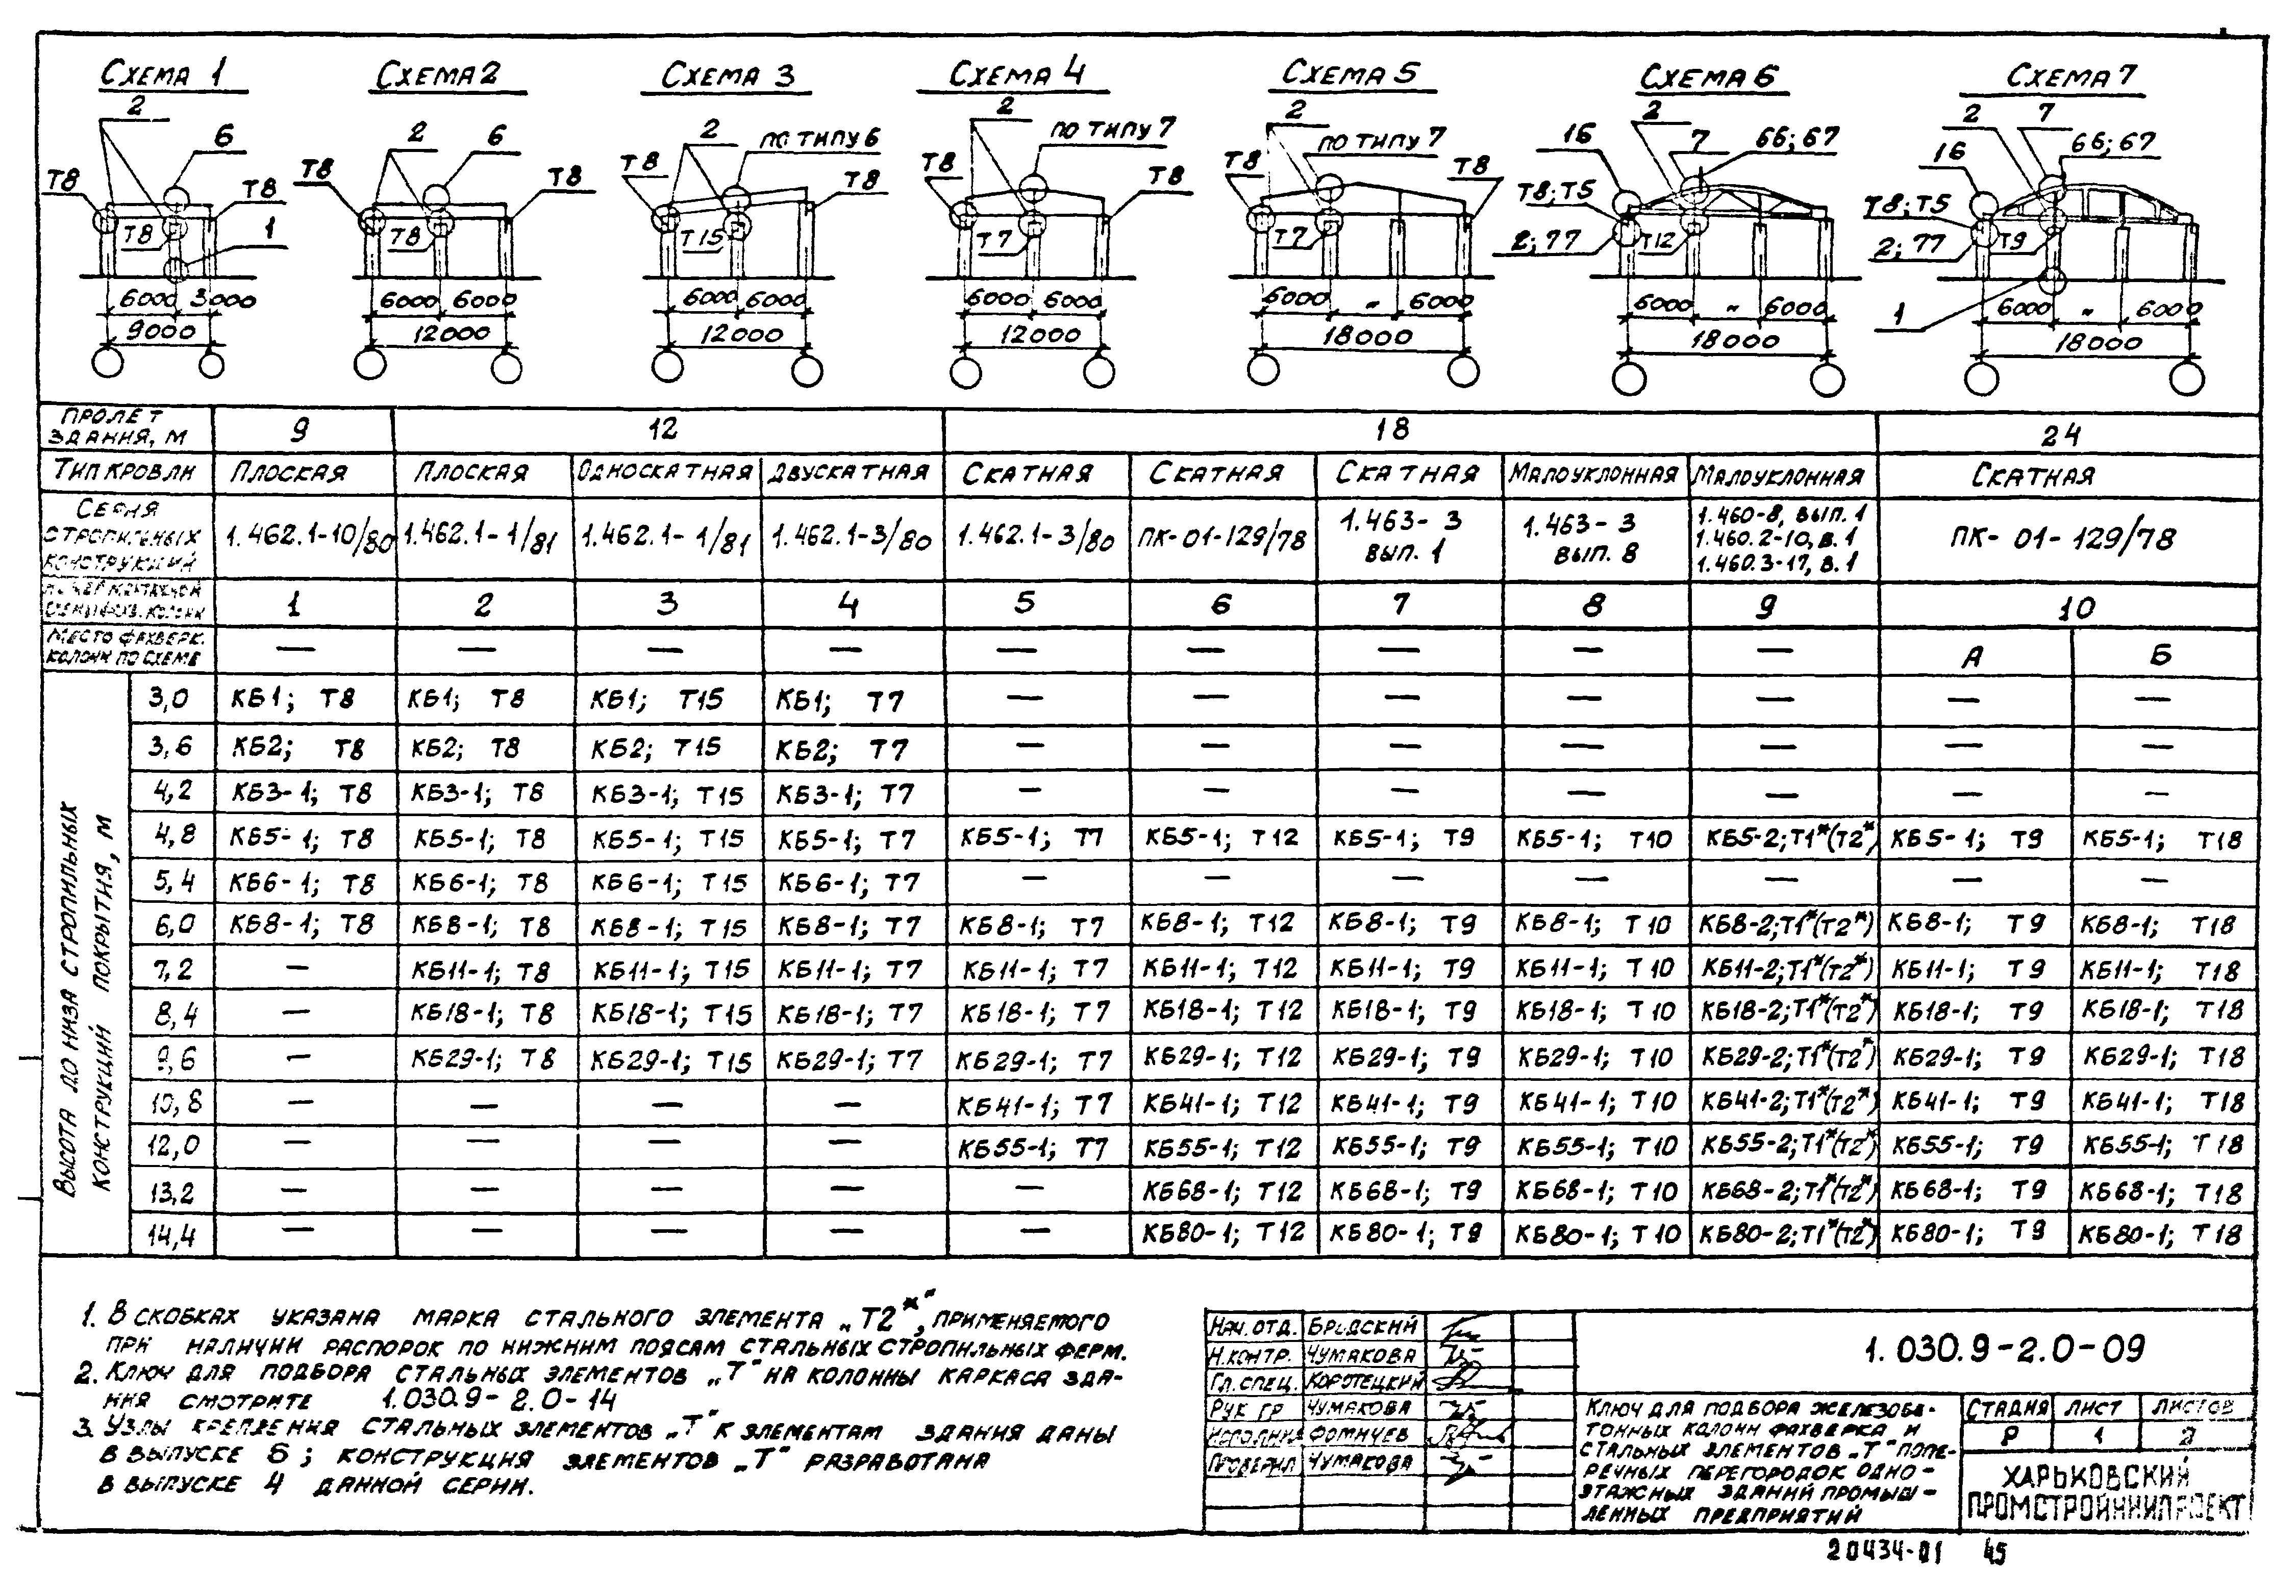 Схема 1
Схема 2
Схема 3
Схема 4
Схема 5
Схема 6
Схема 7
2 6 Т8 Т8 Т8 1
6000 3000
9000
2 6 Т8 Т8 Т8
6000 6000
12000
2 по типу 6 Т8 Т8 Т15
6000 6000
12000
2 по типу 7 Т8 Т8 Т7
6000 6000
12000
2 по типу 7 Т8 Т8 Т7
6000 " 6000
18000
2 16 7 66; 67 Т8; Т5 2; 77 Т12
6000 " 6000
18000
2 7 16 66; 67 Т8; Т5 2; 77 Т9 1
6000 " 6000
18000
Пролёт здания, м 9 12 18 24
Тип кровли Плоская Плоская Односкатная Двускатная Скатная Скатная Скатная Малоуклонная Малоуклонная Скатная
Серия стропильных конструкций 1.462.1-10/80 1.462.1-1/81 1.462.1-1/81 1.462.1-3/80 1.462.1-3/80 ПК-01-129/78 1.463-3 вып. 1 1.463-3 вып. 8 1.460-8, вып. 1 1.460.2-10, в. 1 1.460.3-17, в. 1 ПК-01-129/78
колонн 1 2 3 4 5 6 7 8 9 10
Место фахверк. колонн по схеме — — — — — — — — — А Б
Высота до низа стропильных конструкций покрытия, м
3,0 КБ1; Т8 КБ1; Т8 КБ1; Т15 КБ1; Т7 — — — — — — —
3,6 КБ2; Т8 КБ2; Т8 КБ2; Т15 КБ2; Т7 — — — — — — —
4,2 КБ3-1; Т8 КБ3-1; Т8 КБ3-1; Т15 КБ3-1; Т7 — — — — — — —
4,8 КБ5-1; Т8 КБ5-1; Т8 КБ5-1; Т15 КБ5-1; Т7 КБ5-1; Т7 КБ5-1; Т12 КБ5-1; Т9 КБ5-1; Т10 КБ5-2; Т1*(Т2*) КБ5-1; Т9 КБ5-1; Т18
5,4 КБ6-1; Т8 КБ6-1; Т8 КБ6-1; Т15 КБ6-1; Т7 — — — — — — —
6,0 КБ8-1; Т8 КБ8-1; Т8 КБ8-1; Т15 КБ8-1; Т7 КБ8-1; Т7 КБ8-1; Т12 КБ8-1; Т9 КБ8-1; Т10 КБ8-2; Т1*(Т2*) КБ8-1; Т9 КБ8-1; Т18
7,2 — КБ11-1; Т8 КБ11-1; Т15 КБ11-1; Т7 КБ11-1; Т7 КБ11-1; Т12 КБ11-1; Т9 КБ11-1; Т10 КБ11-2; Т1*(Т2*) КБ11-1; Т9 КБ11-1; Т18
8,4 — КБ18-1; Т8 КБ18-1; Т15 КБ18-1; Т7 КБ18-1; Т7 КБ18-1; Т12 КБ18-1; Т9 КБ18-1; Т10 КБ18-2; Т1*(Т2*) КБ18-1; Т9 КБ18-1; Т18
9,6 — КБ29-1; Т8 КБ29-1; Т15 КБ29-1; Т7 КБ29-1; Т7 КБ29-1; Т12 КБ29-1; Т9 КБ29-1; Т10 КБ29-2; Т1*(Т2*) КБ29-1; Т9 КБ29-1; Т18
10,8 — — — — КБ41-1; Т7 КБ41-1; Т12 КБ41-1; Т9 КБ41-1; Т10 КБ41-2; Т1*(Т2*) КБ41-1; Т9 КБ41-1; Т18
12,0 — — — — КБ55-1; Т7 КБ55-1; Т12 КБ55-1; Т9 КБ55-1; Т10 КБ55-2; Т1*(Т2*) КБ55-1; Т9 КБ55-1; Т18
13,2 — — — — — КБ68-1; Т12 КБ68-1; Т9 КБ68-1; Т10 КБ68-2; Т1*(Т2*) КБ68-1; Т9 КБ68-1; Т18
14,4 — — — — — КБ80-1; Т12 КБ80-1; Т9 КБ80-1; Т10 КБ80-2; Т1*(Т2*) КБ80-1; Т9 КБ80-1; Т18
1. В скобках указана марка стального элемента „Т2*", применяемого
при наличии распорок по нижним поясам стальных стропильных ферм.
2. Ключ для подбора стальных элементов „Т" на колонны каркаса зда-
ния смотрите 1.030.9-2.0-14
3. Узлы крепления стальных элементов „Т" к элементам здания даны
в выпуске 6; конструкция элементов „Т" разработана
в выпуске 4 данной серии.
Нач. отд. Бродский
Н. контр. Чумакова
Гл. спец. Коротецкий
Рук. гр. Чумакова
Исполнил Фомичев
Проверил Чумакова
1.030.9-2.0-09
Ключ для подбора железобе-
тонных колонн фахверка и
стальных элементов „Т" попе-
речных перегородок одно-
этажных зданий промыш-
ленных предприятий
Стадия Лист Листов
Р 1 2
ХАРЬКОВСКИЙ
ПРОМСТРОЙНИИПРОЕКТ
20434-01 45